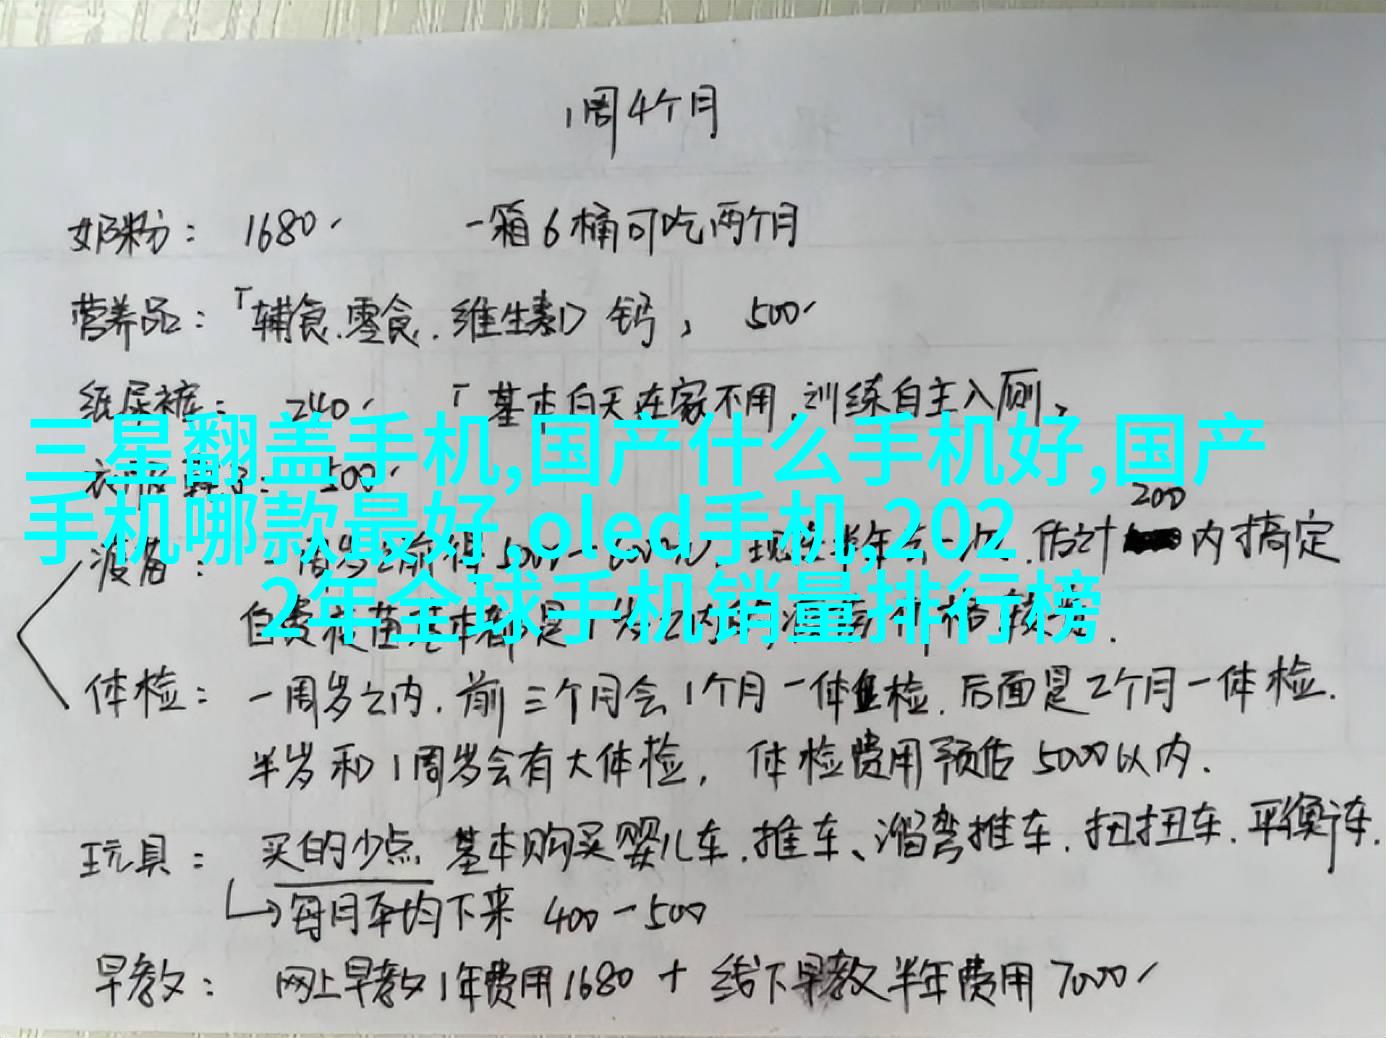 1周4个月
奶粉： 1680 一箱6桶可吃两个月
营养品：「辅食.零食.维生素D 钙， 500
纸尿裤： 240 「基本白天在家不用.训练自主入厕，
三星翻盖手机,国产什么手机好,国产
500
手机哪款最好,oled手机,202
200
估计 内搞定
2年全球手机销量排行榜
体检：一周岁之内.前三个月会1个月一体检.后面是2个月一体检.
半岁和1周岁会有大体检， 体检费用预估5000以内.
玩具： 买的少点 基本购买婴儿车.推车、溜弯推车.扭扭车.平衡车.
每月平均下来 400-500
早教： 网上早教1年费用1680 + 线下早教半年费用7000